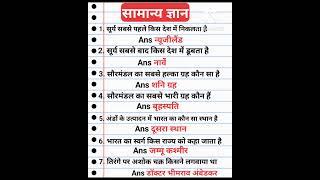 सामान्य ज्ञान
1. सूर्य सबसे पहले किस देश में निकलता है
Ans न्यूजीलैंड
2. सूर्य सबसे बाद किस देश में डूबता है
Ans नार्वे
3. सौरमंडल का सबसे हल्का ग्रह कौन सा है
Ans शनि ग्रह
4. सौरमंडल का सबसे भारी ग्रह कौन हैं
Ans बृहस्पति
5. अंडों के उत्पादन में भारत का कौन सा स्थान है
Ans दूसरा स्थान
6. भारत का स्वर्ग किस राज्य को कहा जाता है
Ans जम्मू कश्मीर
7. तिरंगे पर अशोक चक्र किसने लगवाया था
Ans डॉक्टर भीमराव अंबेडकर